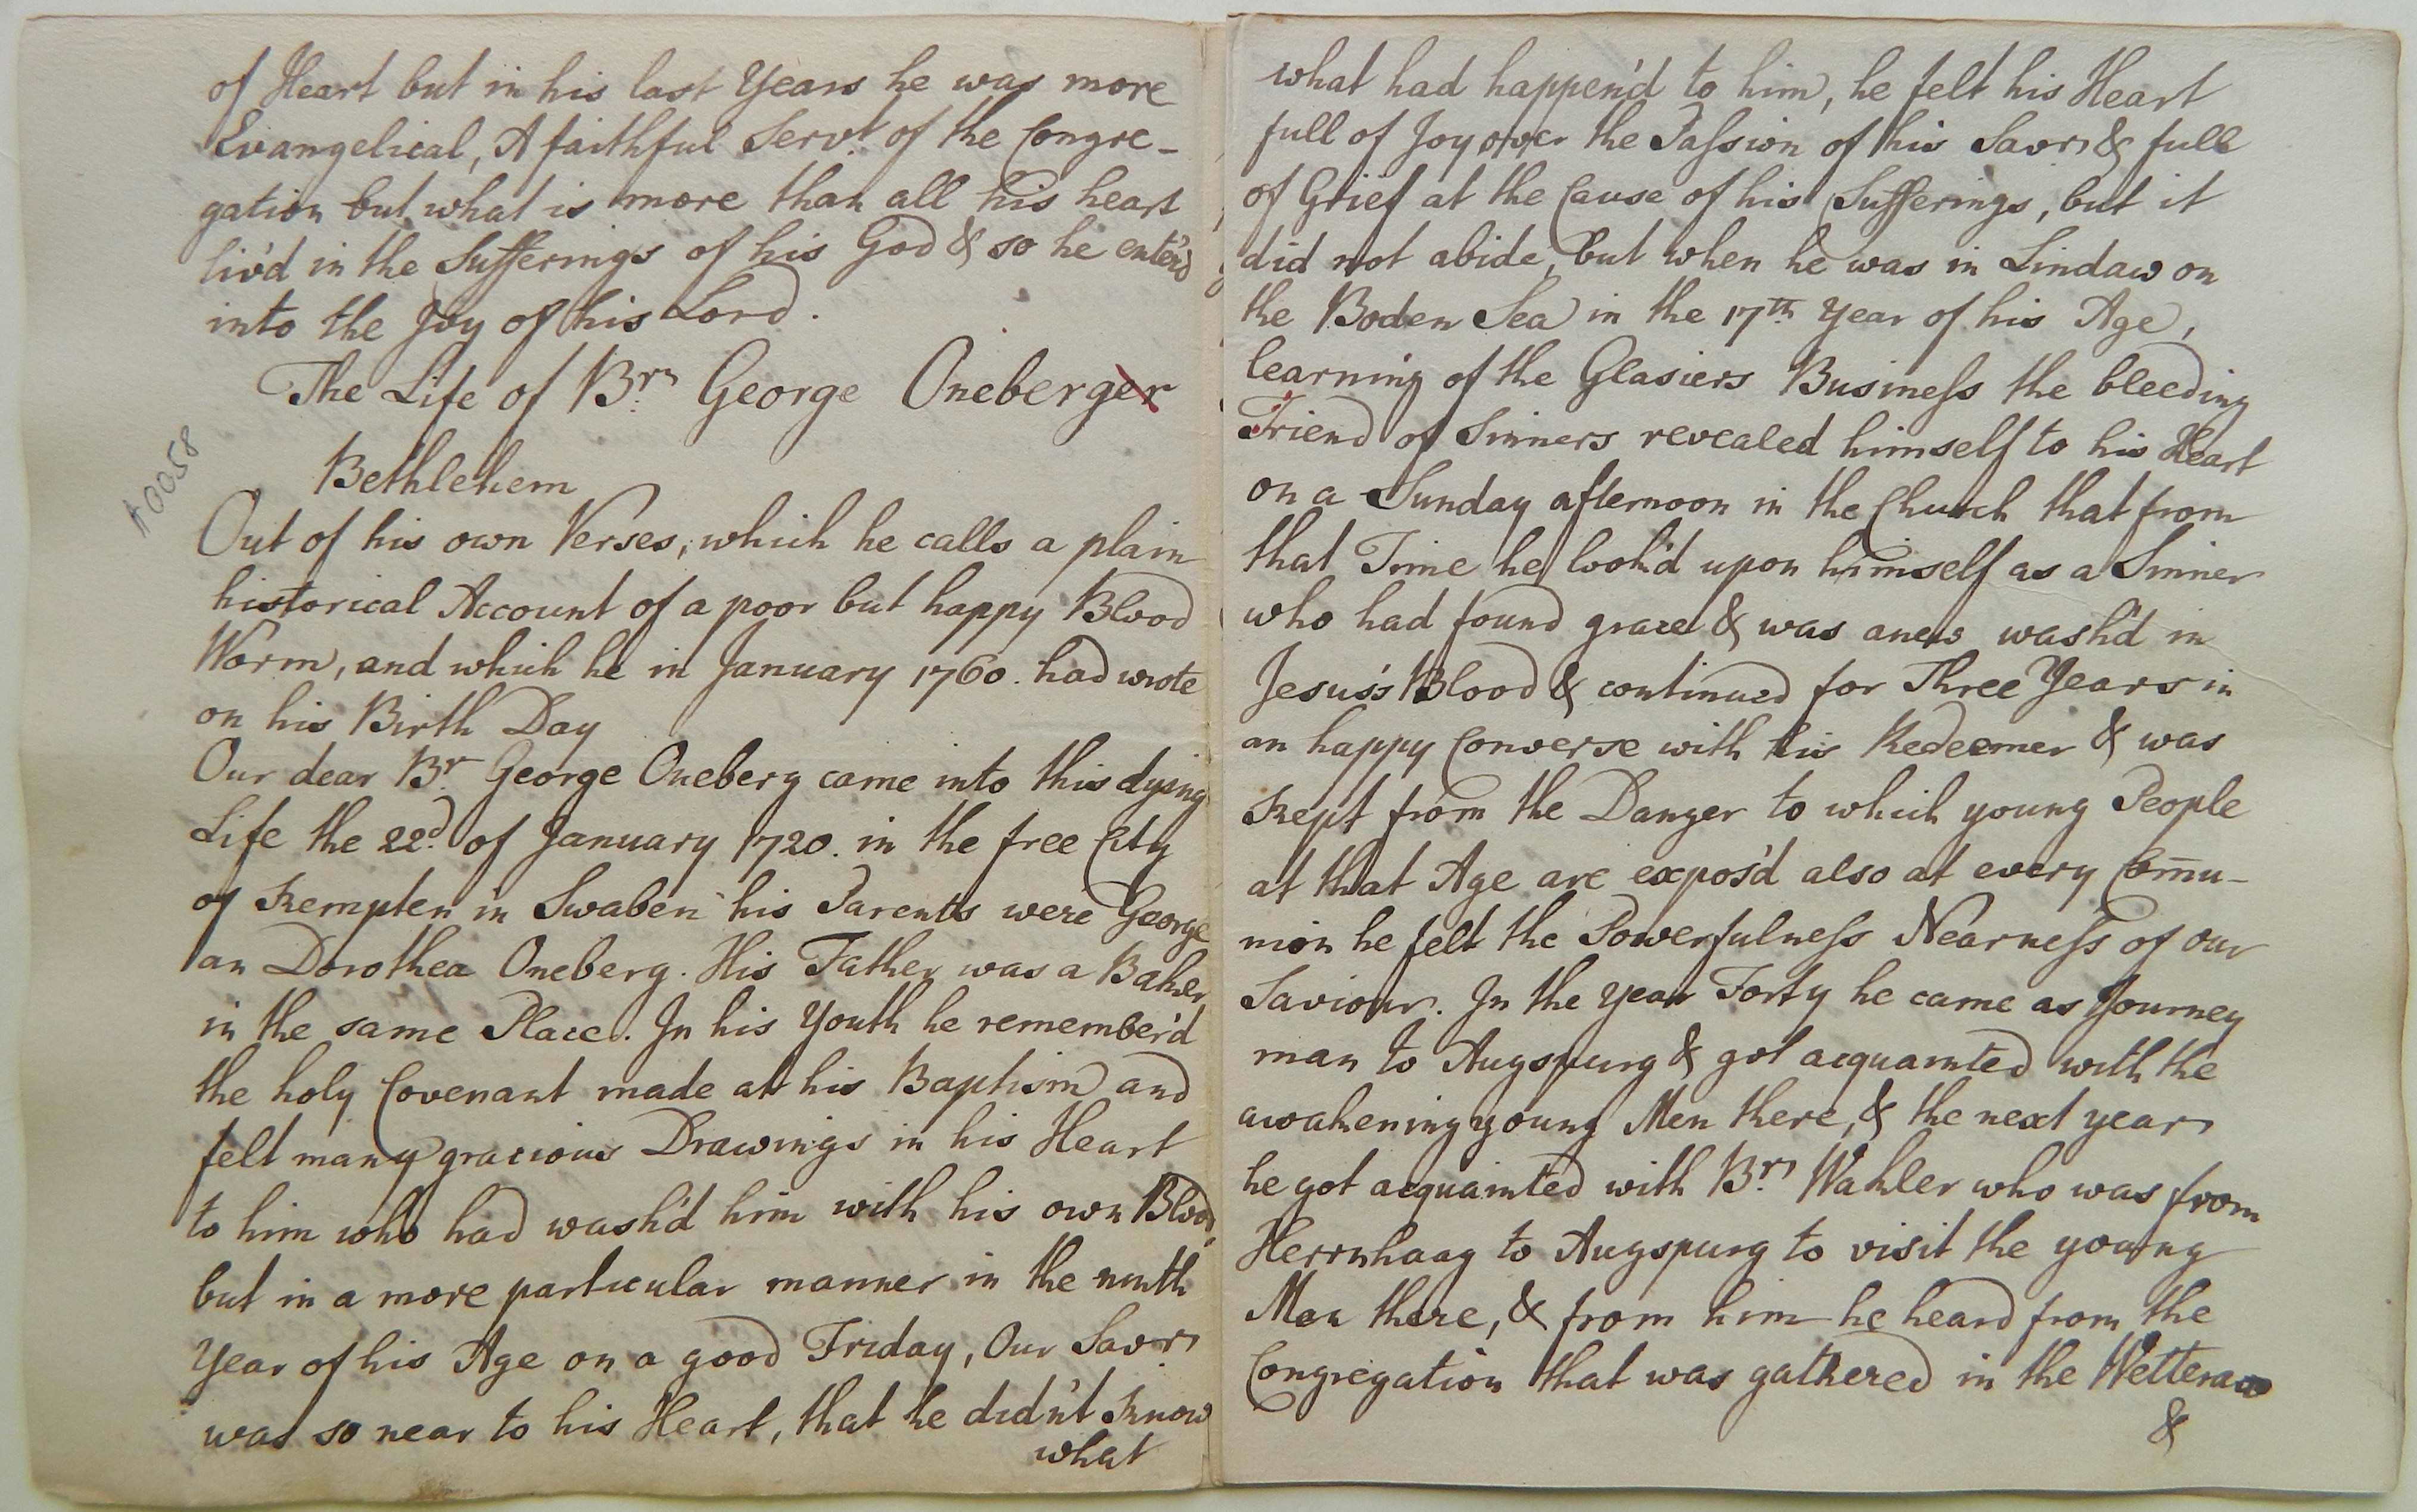 of Heart but in his last Years he was more
Evangelical, A faithful Servt. of the Congre-
gation but what is more than all his heart
liv'd in the Sufferings of his God & so he enter'd
into the Joy of his Lord.
The Life of Br. George Oneberger
Bethlehem
A0058
Out of his own Verses, which he calls a plain
historical Account of a poor but happy Blood
Worm, and which he in January 1760. had wrote
on his Birth Day
Our dear Br. George Oneberg came into this dying
Life the 22d. of January 1720. in the free City
of Kempten in Swaben his Parents were George
an Dorothea Oneberg. His Father was a Baker
in the same Place. In his Youth he remember'd
the holy Covenant made at his Baptism and
felt many gracious Drawings in his Heart
to him who had wash'd him with his own Blood,
but in a more particular manner in the ninth
Year of his Age on a good Friday, Our Savr.
was so near to his Heart, that he didn't know
what
what had happen'd to him, he felt his Heart
full of Joy over the Passion of his Savr. & full
of Grief at the Cause of his Sufferings, but it
did not abide, but when he was in Lindaw on
the Boden Sea in the 17th Year of his Age,
learning of the Glasiers Business the bleeding
Friend of Sinners revealed himself to his Heart
on a Sunday afternoon in the Church that from
that Time he look'd upon himself as a Sinner
who had found grace & was anew wash'd in
Jesus's Blood & continued for Three Years in
an happy Converse with his Redeemer & was
kept from the Danger to which young People
at that Age are expos'd also at every Com̅u-
nion he felt the Powerfulness Nearness of our
Saviour. In the Year Forty he came as Journey
man to Augspurg & got acquainted with the
awakening young Men there, & the next year
he got acquainted with Br. Wahler who was from
Herrnhaag to Augspurg to visit the young
Men there, & from him he heard from the
Congregation that was gathered in the Wetteraw
&